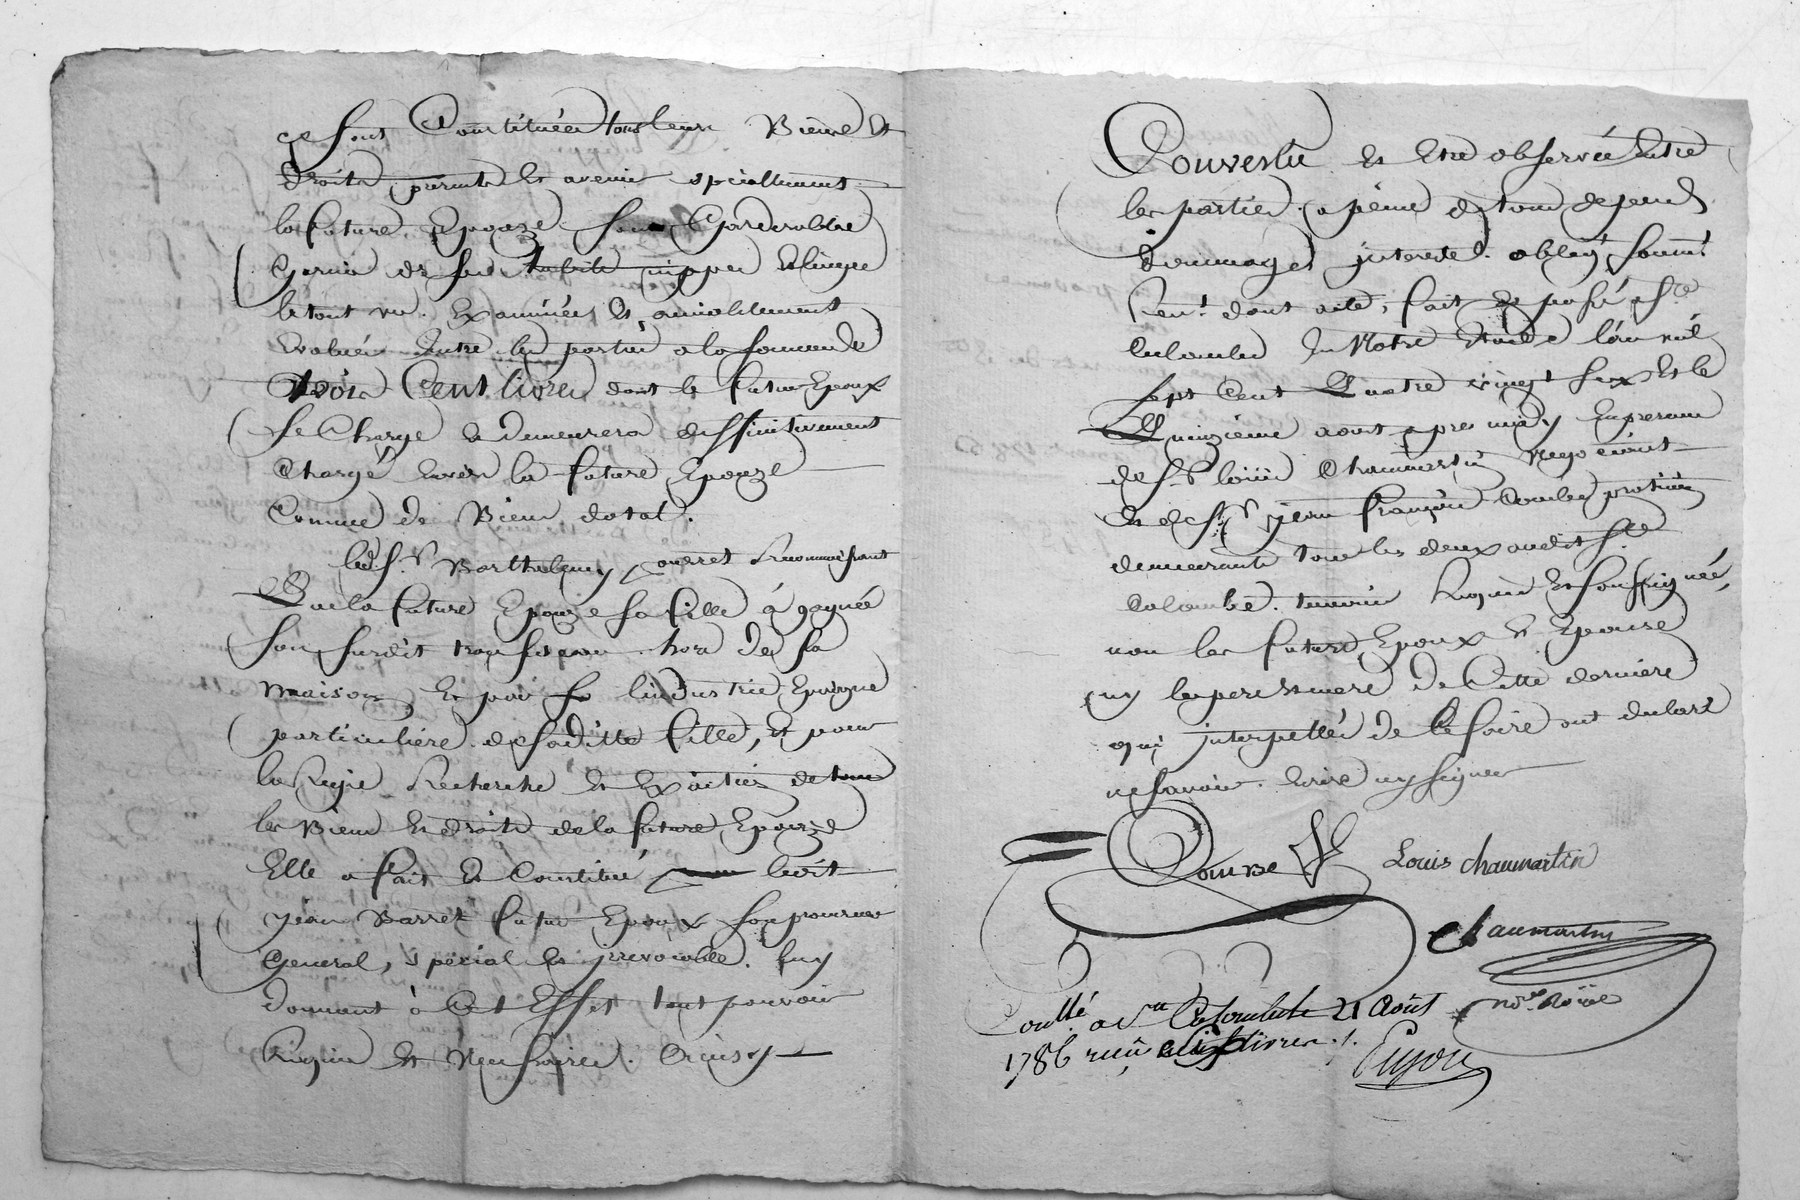 se sont Constituées tous leurs Biens et
droits presents et avenir speciallement
la future Epouze son Garderobbe
Garnie de ses habits nippes et linges
le tout vu Examinée et amiablement
Evalué Entre les parties a la somme de
trois Cent livres dont le futur Epoux
se Charge et demeurera deffinitivement
Chargé Envers la future Epouze
Comme de Biens dotal.
led. Sr. Barthelemy reconnoissant
Que la future Epouze sa fille à gagnée
son susdit trousseau hors de sa
maison Et par lindustrie Epargne
particuliére de saditte fille, Et pour
la Regie Recherche et Exaction de tous
les Biens et droits de la future Epouze
Elle a fait et Constitué ledit
jean Barret futur Epoux son procureur
General, spécial et irrevocable. luy
donnant à Cet Effet tout pouvoir
Requis et Necessaire. Ainsy
Convenu et Etre observée Entre
les parties a peine de tous depends
dommages interets. oblig. soum.
Ren. dont acte, fait et passé a Ste
Colombe En Notre Etude l'an mil
sept Cent Quatre vingt six Et le
Quinzieme aout apres midy En presence
de Sr. loüis Chaumartin Negociant
et de Sr. jean françois Combe praticien
demeurants tous les deux audit Ste
Colombe. temoins Requis Et soussignées,
non les futurs Epoux et Epouse
ny les pere et mere de Cette derniere
qui interpellés de le faire ont declaré
ne savoir Ecrire ny signer
Combe Louis chaumartin
chaumartin
nore. Roïal
Conllé a Ste Colombe le 21 Août
1786 reçû livres
Guyon